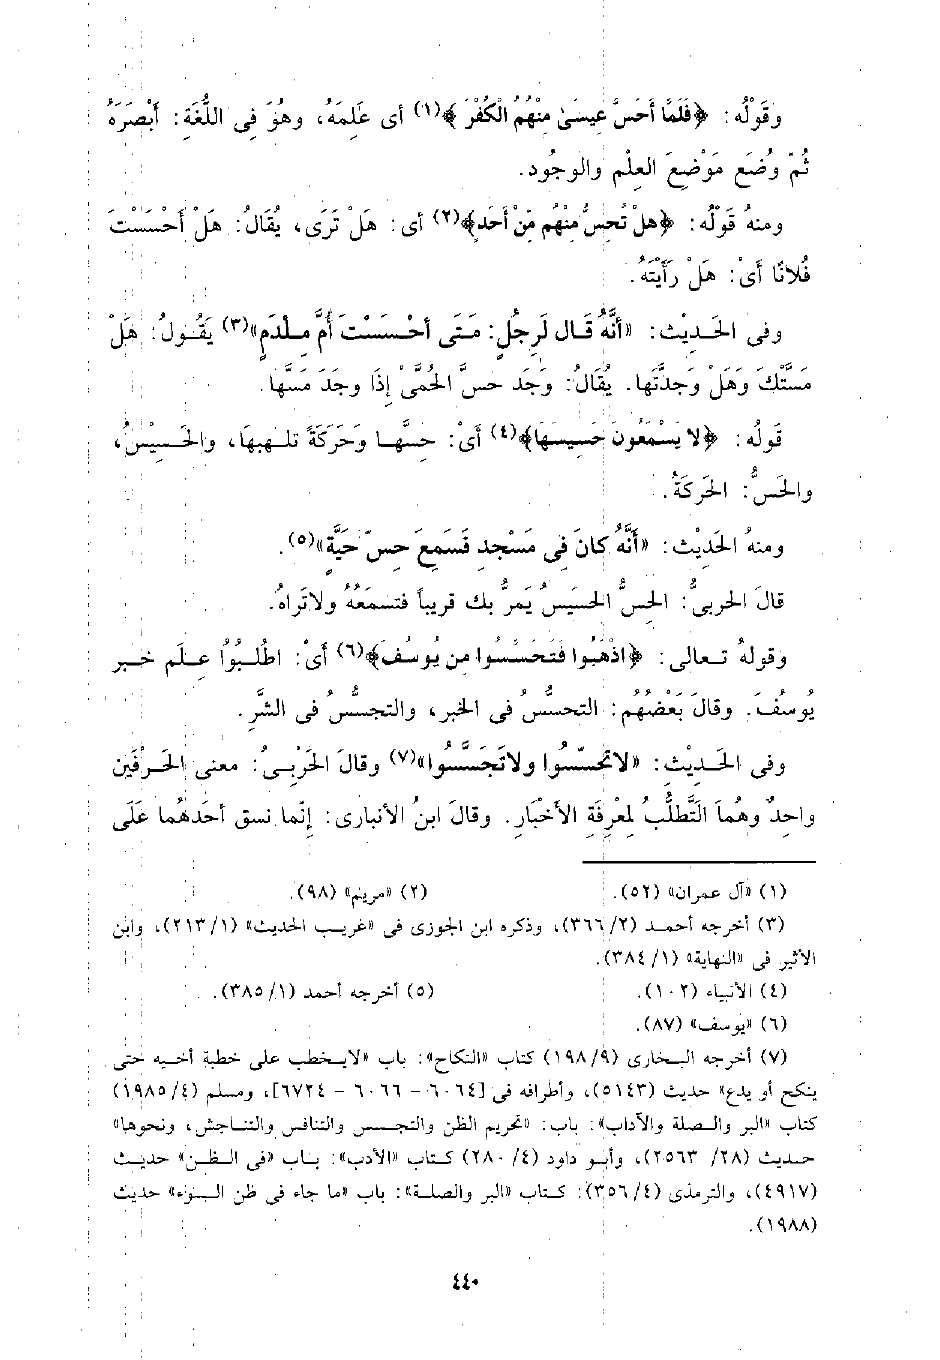 وقَوْلُه: ﴿فَلَمَّا أَحَسَّ عِيسَىٰ مِنْهُمُ الْكُفْرَ﴾(١) أى عَلِمَهُ، وهُوَ فِى اللُّغَةِ: أَبْصَرَهُ
ثُمّ وُضَع مَوْضِعَ العِلْم والوجُود.
ومنهُ قَوْلُه: ﴿هَلْ تُحِسُّ مِنْهُم مِّنْ أَحَدٍ﴾(٢) أى: هَلْ تَرَى، يُقَالُ: هَلْ أَحْسَسْتَ
فُلانًا أىْ: هَلْ رَأَيْتَهُ.
وفى الحَـديْث: «أنَّهُ قَـال لَرجُلٍ: مَـتَى أحْـسَـسْتَ أُمَّ ملْدَمٍ»(٣) يَقُـولُ: هَلْ
مَسَّتْكَ وَهَلْ وَجدتَّها. يُقَالُ: وَجَد حسَّ الحُمَّىْ إذَا وجَدَ مَسَّها.
قَولُه: ﴿لا يَسْمَعُونَ حَسِيسَهَا﴾(٤) أىْ: حسَّهـا وَحَركَةَ تلـهبهَا، والحَـسيْسُ،
والحَسُّ: الحَركَةُ.
ومنهُ الحَديْث: «أنَّهُ كانَ فى مَسْجدٍ فَسَمِعَ حِسّ حَيَّةٍ»(٥).
قالَ الحربىُّ: الحِسُّ الحَسيَسُ يَمرُّ بك قريباً فتسمَعُهُ ولاتَراهُ.
وقولهُ تـعالى: ﴿اذْهَبُوا فَتَحَسَّسُوا من يُوسُفَ﴾(٦) أىْ: اطلُبُوُا عِـلَم خـبر
يُوسُفَ. وقالَ بَعْضُهُم: التحسسُّ فُى الخير، والتجسسُّ فى الشَّرِ.
وفى الحَـديْث: «لاتحسَّسُوا ولاتَجَسَّسُوا»(٧) وقالَ الحَرْبـىُ: معنى الحَـرْفَين
واحِدٌ وهُماَ الَتَّطلُّبُ لمعْرِفَةِ الأخْبَارِ. وقالَ ابنُ الأنبارى: إنَّما نسق أحدَهُما عَلَى
(١) «آل عمران» (٥٢).
(٢) «مريم» (٩٨).
(٣) أخرجه أحمـد (٢/ ٣٦٦)، وذكره ابن الجوزى فى «غريب الحديث» (١/ ٢١٣)، وابن
الأثير فى «النهاية» (١/ ٣٨٤).
(٤) الأنبياء (١٠٢).
(٥) أخرجه أحمد (١/ ٣٨٥).
(٦) «يوسف» (٨٧).
(٧) أخرجه البـخارى (٩/ ١٩٨) كتاب «النكاح»: باب «لايـخطب على خطبة أخـيه حتى
ينكح أو يدع» حديث (٥١٤٣)، وأطرافه فى [٦٠٦٤ - ٦٠٦٦ - ٦٧٢٤]، ومسلم (٤/ ١٩٨٥)
كتاب «البر والـصلة والآداب»: باب: «تحريم الظن والتجـسس والتنافس والتنـاجش، ونحوها»
حـديث (٢٨/ ٢٥٦٣)، وأبـو داود (٤/ ٢٨٠) كـتاب «الأدب»: بـاب «فى الـظـن» حديـث
(٤٩١٧)، والترمذى (٤/ ٣٥٦): كـتاب «البر والصلـة»: باب «ما جاء فى ظن الـسوء» حديث
(١٩٨٨).
٤٤٠